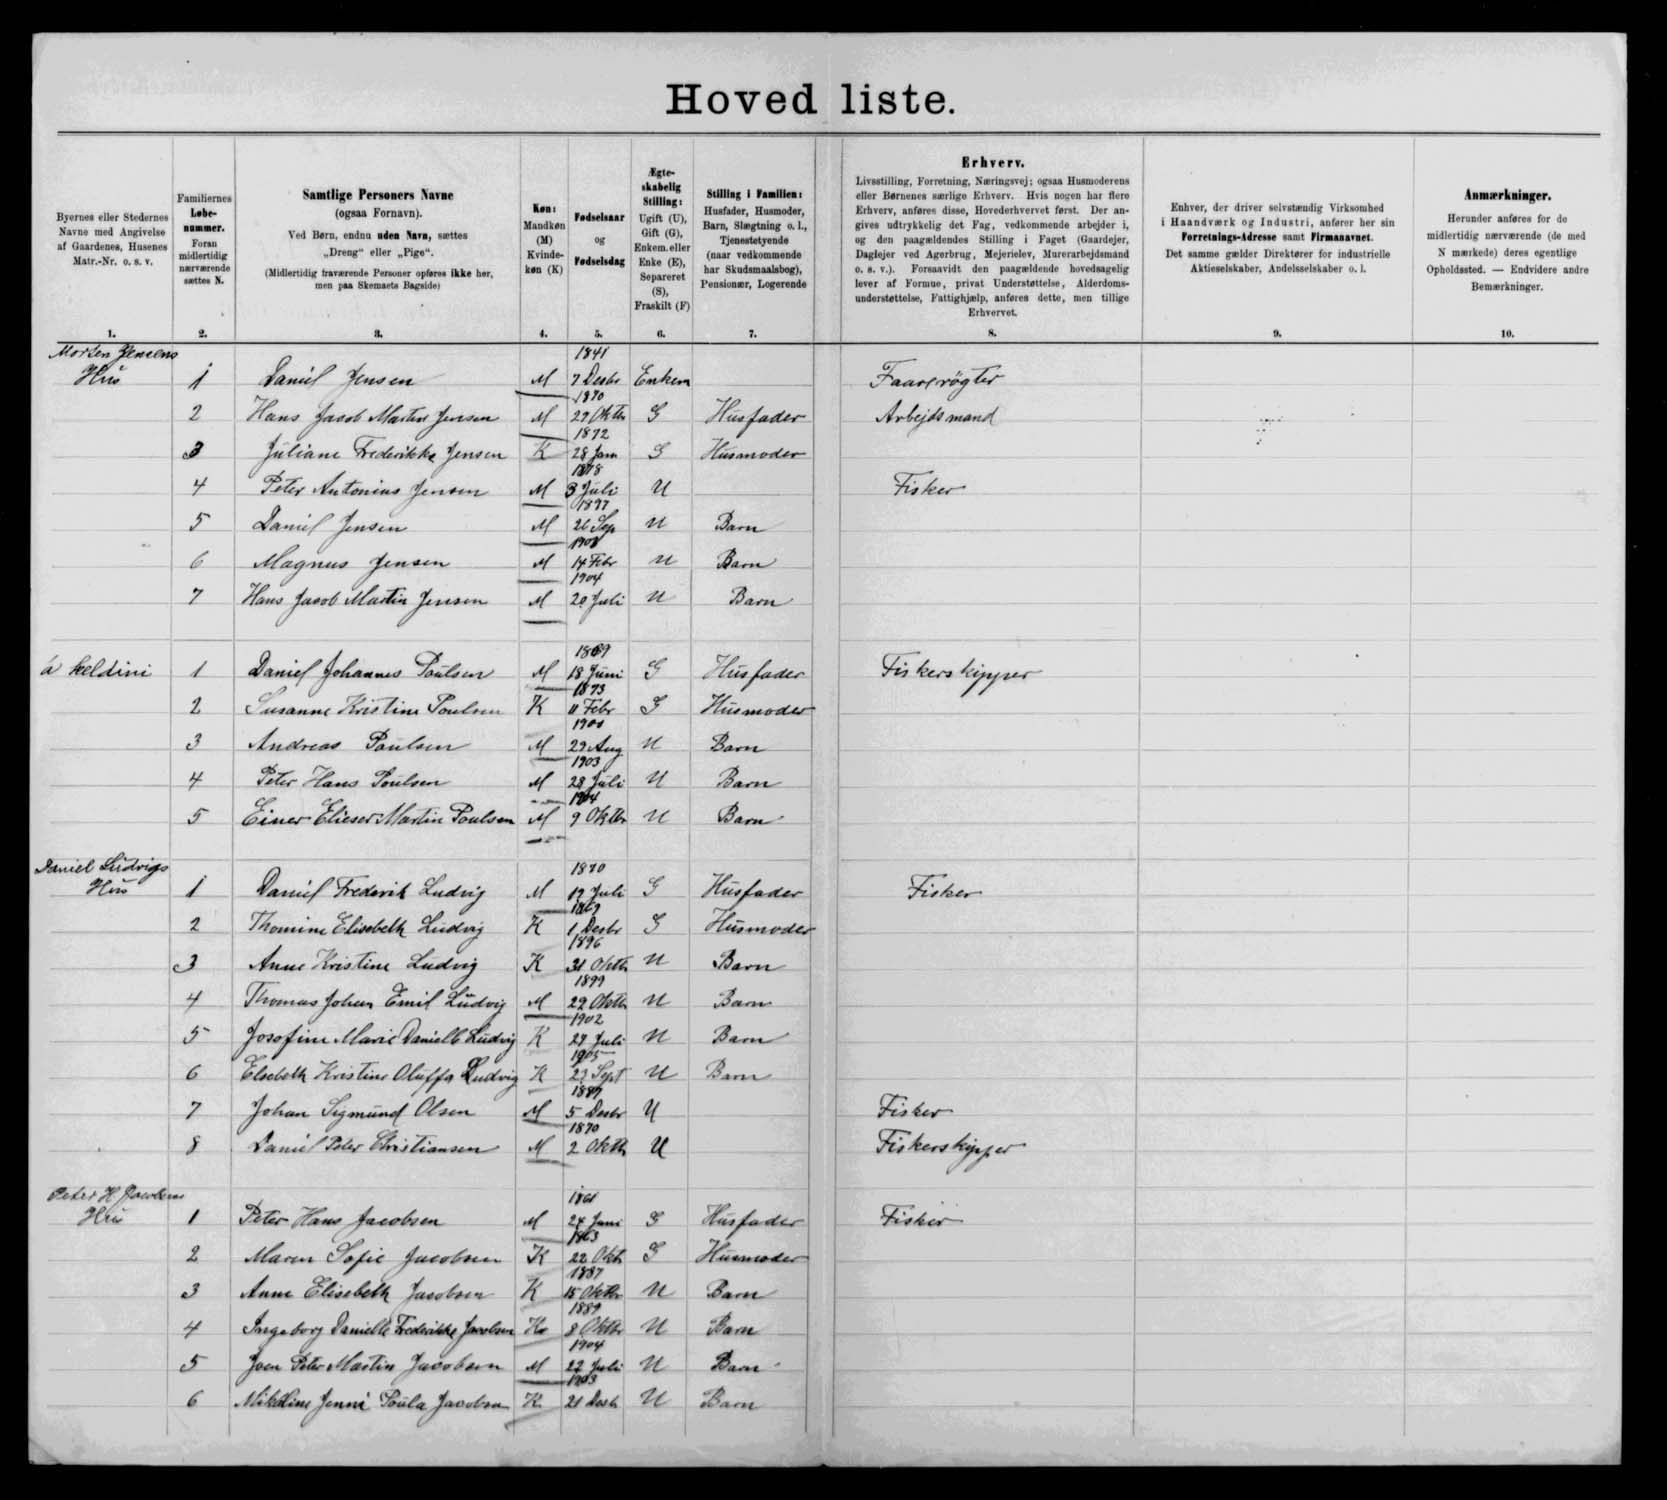 Hoved liste.
Byernes eller Stedernes
Navne med Angivelse
af Gaardenes, Husenes
Matr.-Nr. o. s. v.
1.
Familiernes
Løbe-
nummer.
Foran
midlertidig
nærværende
sættes N.
2.
Samtlige Personers Navne
(ogsaa Fornavn).
Ved Børn, endnu uden Navn, sættes
„Dreng“ eller „Pige“.
(Midlertidig fraværende Personer opføres ikke her,
men paa Skemaets Bagside)
3.
Køn:
Mandkøn
(M)
Kvinde-
køn (K)
4.
Fødselsaar
og
Fødselsdag
5.
Ægte-
skabelig
Stilling:
Ugift (U),
Gift (G),
Enkem. eller
Enke (E),
Separeret
(S),
Fraskilt (F)
6.
Stilling i Familien:
Husfader, Husmoder,
Barn, Slægtning o. l.,
Tjenestetyende
(naar vedkommende
har Skudsmaalsbog),
Pensionær, Logerende
7.
Erhverv.
Livsstilling, Forretning, Næringsvej; ogsaa Husmoderens
eller Børnenes særlige Erhverv. Hvis nogen har flere
Erhverv, anføres disse, Hovederhvervet først. Der an-
gives udtrykkelig det Fag, vedkommende arbejder i,
og den paagældendes Stilling i Faget (Gaardejer,
Daglejer ved Agerbrug, Mejerielev, Murerarbejdsmand
o. s. v.). Forsaavidt den paagældende hovedsagelig
lever af Formue, privat Understøttelse, Alderdoms-
understøttelse, Fattighjælp, anføres dette, men tillige
Erhvervet.
8.
Enhver, der driver selvstændig Virksomhed
i Haandværk og Industri, anfører her sin
Forretnings-Adresse samt Firmanavnet.
Det samme gælder Direktører for industrielle
Aktieselskaber, Andelsselskaber o. l.
9.
Anmærkninger.
Herunder anføres for de
midlertidig nærværende (de med
N mærkede) deres egentlige
Opholdssted. — Endvidere andre
Bemærkninger.
10.
Morten Jensens 1841
Hus 1 Daniel Jensen M 7 Desbr Enkem Faarerøgter
1870
2 Hans Jacob Martin Jensen M 29 Oktbr G Husfader Arbejdsmand
1872
3 Juliane Frederikke Jensen K 28 Jan G Husmoder
1878
4 Peter Antonius Jensen M 3 Juli U Fisker
1897
5 Daniel Jensen M 26 Sep U Barn
6 Magnus Jensen M 14 Febr U Barn
1904
7 Hans Jacob Martin Jensen M 20 Juli U Barn
1869
á keldini 1 Daniel Johannes Poulsen M 18 Juni G Husfader Fiskerskipper
1873
2 Susanne Kristine Poulsen K 11 Febr G Husmoder
3 Andreas Poulsen M 29 Aug U Barn
1903
4 Peter Hans Poulsen M 28 Juli U Barn
1904
5 Einer Elieser Martin Poulsen M 9 Oktbr U Barn
Daniel Ludvigs 1870
Hus 1 Daniel Frederik Ludvig M 19 Juli G Husfader Fisker
1869
2 Thomine Elisebeth Ludvig K 1 Desbr G Husmoder
1896
3 Anne Kristine Ludvig K 31 Oktbr U Barn
1899
4 Thomas Johan Emil Ludvig M 29 Oktbr U Barn
1902
5 Josefine Marie Danielle Ludvig K 27 Juli U Barn
1905
6 Elsebeth Kristine Oluffa Ludvig K 23 Sept U Barn
1887
7 Johan Sigmund Olsen M 5 Desbr U Fisker
1870
8 Daniel Peter Christiansen M 2 Oktbr U Fiskerskipper
Peter H. Jacobsens 1861
Hus 1 Peter Hans Jacobsen M 24 Juni G Husfader Fisker
1863
2 Maren Sofie Jacobsen K 22 Okt G Husmoder
1887
3 Anne Elisebeth Jacobsen K 15 Oktbr U Barn
1889
4 Ingeborg Danielle Frederikke Jacobsen K 8 Oktbr U Barn
1904
5 Joen Peter Martin Jacobsen M 22 Juli U Barn
1903
6 Mikkline Jenni Poula Jacobsen K 21 Desb U Barn